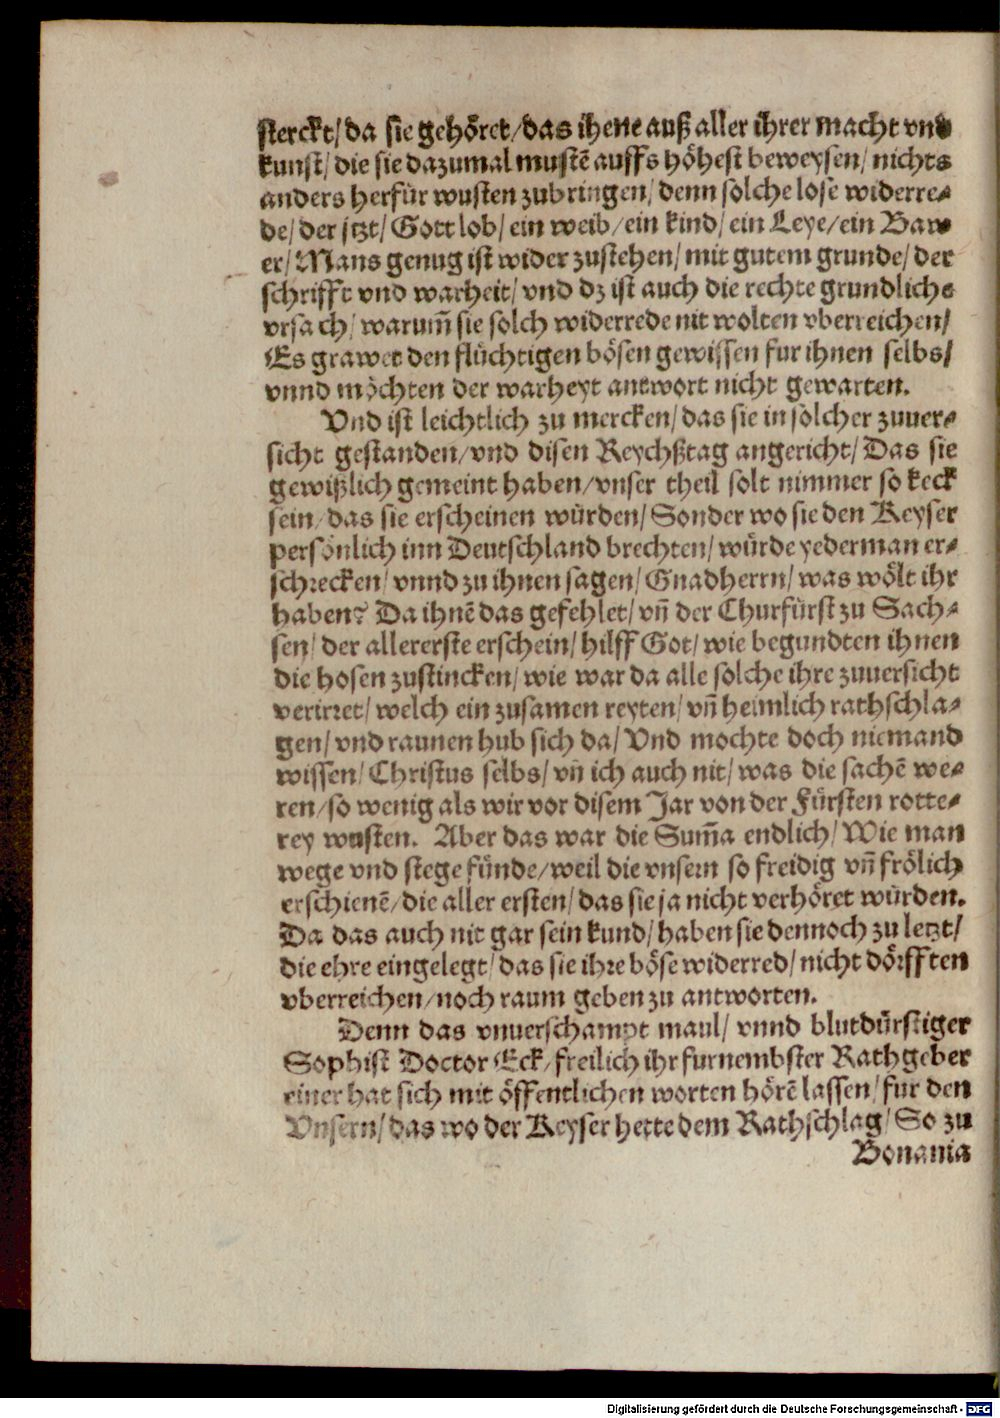 sterckt/ da sie gehöret/ das ihene auß aller ihrer macht vnd
kunst/ die sie dazumal mustē auffs höhest beweysen/ nichts
anders herfür wusten zubringen/ denn solche lose widerre⸗
de/ der jtzt/ Gott lob/ ein weib/ ein kind/ ein Leye/ ein Baw
er/ Mans genug ist wider zustehen/ mit gutem grunde/ der
schrifft vnd warheit/ vnd dz ist auch die rechte grundliche
vrsach/ warum̃ sie solch widerrede nit wolten vberreichen/
Es grawet den flüchtigen bösen gewissen fur ihnen selbs/
vnnd möchten der warheyt antwort nicht gewarten.
Vnd ist leichtlich zu mercken/ das sie in solcher zuuer⸗
sicht gestanden/ vnd disen Reychßtag angericht/ Das sie
gewißlich gemeint haben/ vnser theil solt nimmer so keck
sein/ das sie erscheinen würden/ Sonder wo sie den Keyser
persönlich inn Deutschland brechten/ würde yederman er⸗
schrecken/ vnnd zu ihnen sagen/ Gnadherrn/ was wölt ihr
haben? Da ihnē das gefehlet/ vn̄ der Churfürst zu Sach⸗
sen/ der allererste erschein/ hilff Got/ wie begundten ihnen
die hosen zustincken/ wie war da alle solche ihre zuuersicht
verirret/ welch ein zusamen reyten/ vn̄ heimlich rathschla⸗
gen/ vnd raunen hub sich da/ Vnd mochte doch niemand
wissen/ Christus selbs/ vn̄ ich auch nit/ was die sachē we⸗
ren/ so wenig als wir vor disem Jar von der Fürsten rotte⸗
rey wusten. Aber das war die Sum̃a endlich/ Wie man
wege vnd stege fünde/ weil die vnsern so freidig vn̄ frölich
erschienē/ die aller ersten/ das sie ja nicht verhöret würden.
Da das auch nit gar sein kund/ haben sie dennoch zu letzt/
die ehre eingelegt/ das sie ihre böse widerred/ nicht dörfften
vberreichen/ noch raum geben zu antworten.
Denn das vnuerschampt maul/ vnnd blutdürstiger
Sophist Doctor Eck/ freilich ihr furnembster Rathgeber
einer hat sich mit öffentlichen worten hörē lassen/ fur den
Vnsern/ das wo der Keyser hette dem Rathschlag/ So zu
Bonania
Digitalisierung gefördert durch die Deutsche Forschungsgemeinschaft - DFG